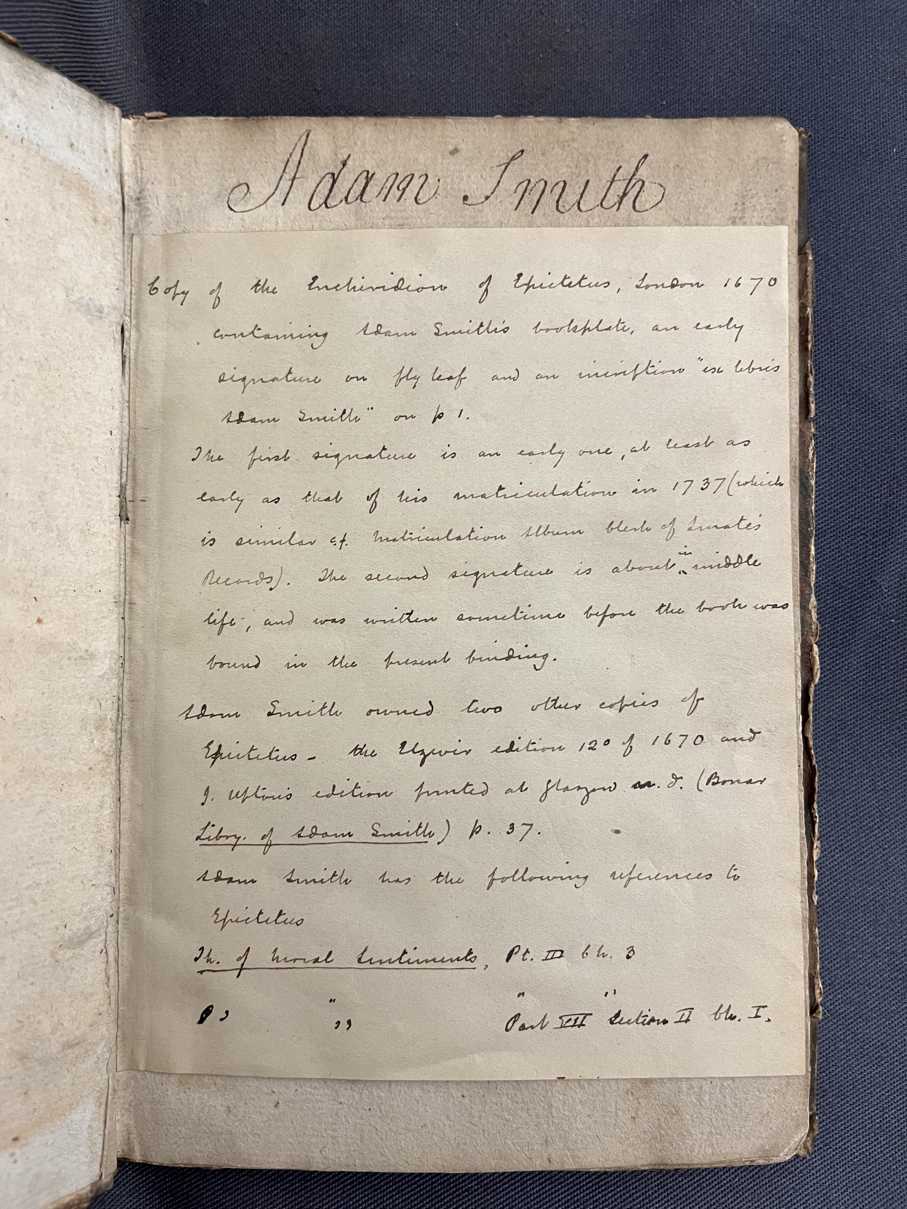 Adam Smith
Copy of the Enchiridion of Epictetus, London 1670
containing Adam Smith's bookplate, an early
signature on fly leaf and an inscription "ex libris
Adam Smith" on p 1.
The first signature is an early one, at least as
early as that of his matriculation in 1737 (which
is similar cf. Matriculation Album Clerk of Senate's
Records). The second signature is about in middle
life, and was written sometime before the book was
bound in the present binding.
Adam Smith owned two other copies of
Epictetus - the Elzevir edition 12º of 1670 and
J. Upton's edition printed at Glasgow n.d. (Bonar
Libry. of Adam Smith) p. 37.
Adam Smith has the following references to
Epictetus
Th. of Moral Sentiments, Pt. III Ch. 3
" ,, " " Part VII Section II Ch. I.